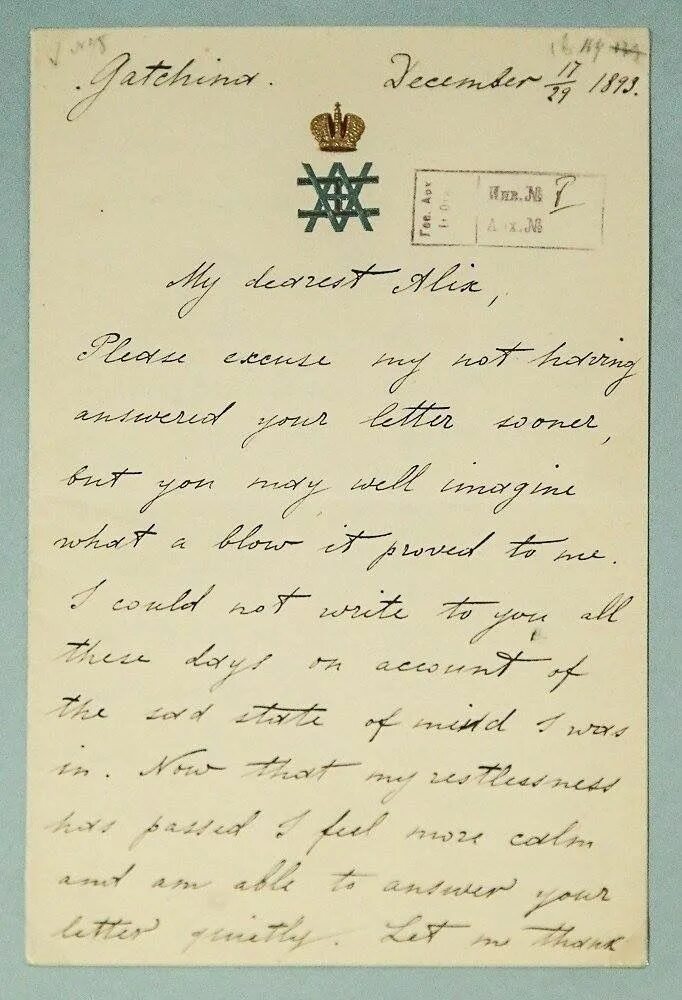 Gatchina. December 17/29 1893.
Инв. № I
Арх. №
My dearest Alix,
Please excuse my not having
answered your letter sooner,
but you may well imagine
what a blow it proved to me.
I could not write to you all
these days on account of
the sad state of mind I was
in. Now that my restlessness
has passed I feel more calm
and am able to answer your
letter quietly. Let me thank